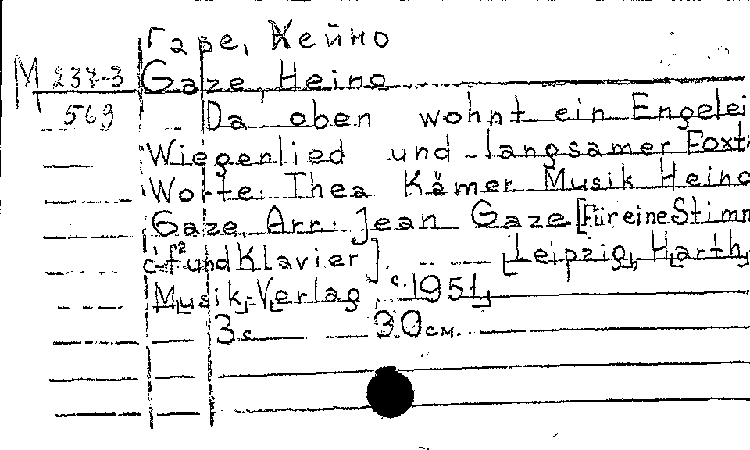 Гаре, Хейно
М 237-3 Gaze, Heino
569 Da oben wohnt ein Engelei
Wiegenlied und langsamer Foxt
Worte: Thea Kämer Musik Heino
Gaze, Arr. Jean Gaze [Für eine Stimm
und Klavier]. Leipzig, Harth,
Musik-Verlag, c. 1951,
3 s. 30 см.